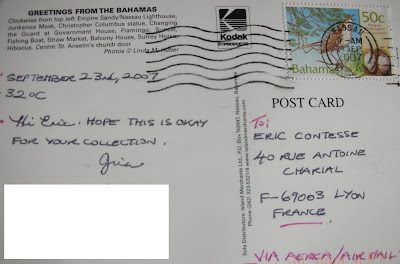 GREETINGS FROM THE BAHAMAS
Clockwise from top left: Empire Sandy/Nassau Lighthouse,
Junkanoo Mask, Christopher Columbus statue, Changing
the Guard at Government House, Flamingo, Sunset,
Fishing Boat, Straw Market, Balcony House, Surrey Horse,
Hibiscus. Centre: St. Anselm's church door
Photos © Linda M. Huber
Kodak
PRODUCTS
50c
NASSAU
AM
SEP
2007
Bahamas
SEPTEMBER 23rd, 2007
32°C
Hi Eric. HOPE THIS IS OKAY
FOR YOUR COLLECTION.
Sole Distributors: Island Merchants Ltd., P.O. Box N7941, Nassau, Bahamas
POST CARD
To:
ERIC CONTESSE
40 RUE ANTOINE
CHARIAL
F-69003 LYON
FRANCE
VIA AEREA/AIR MAIL